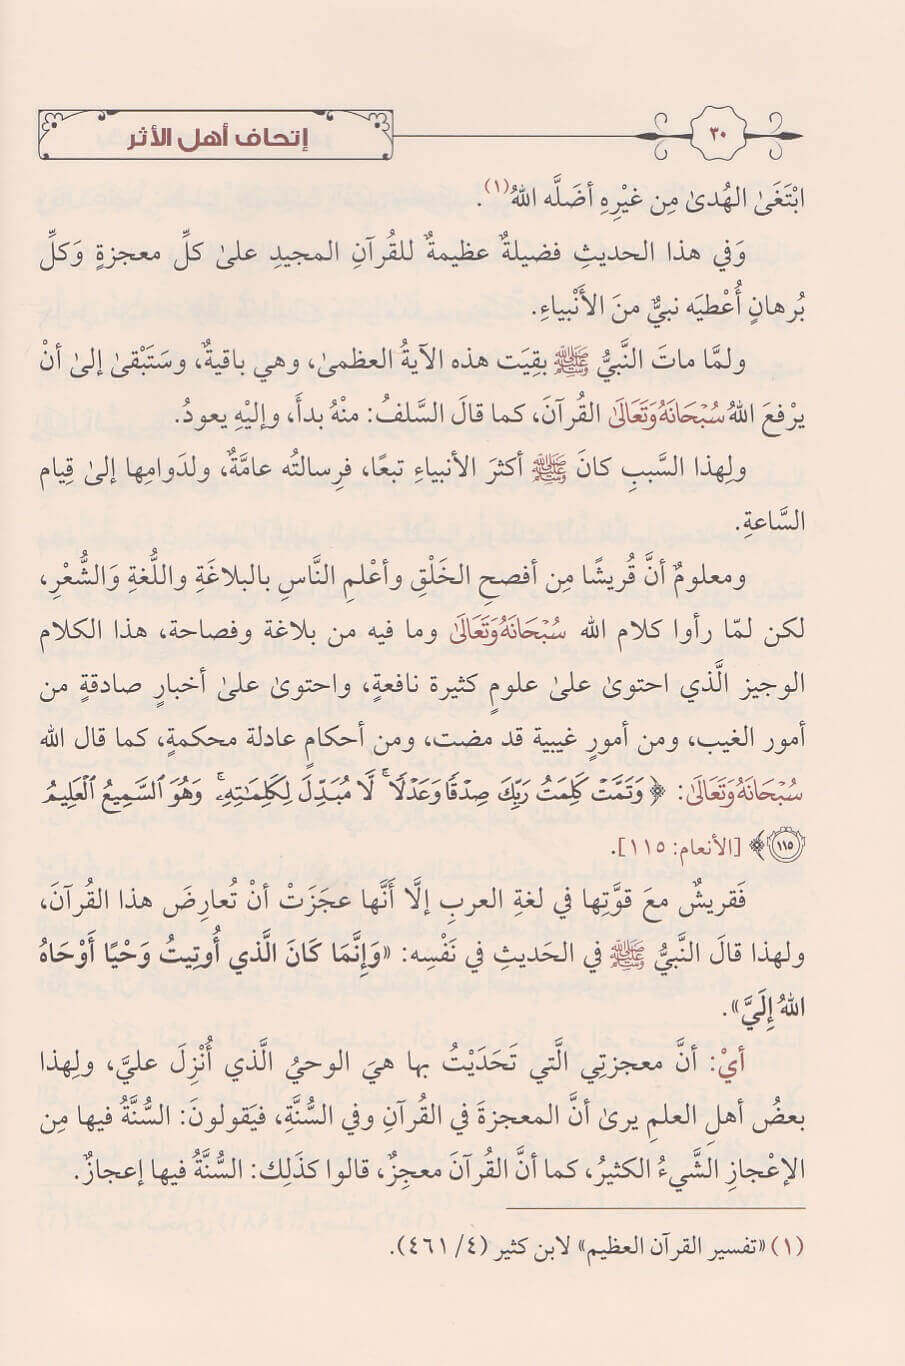 ٣٠
إتحاف أهل الأثر
ابْتَغَىٰ الهُدىٰ مِن غيْرِهِ أضَلَّه اللهُ(١).
وَفي هذا الحديثِ فضيلةٌ عظيمةٌ للقُرآنِ المجيدِ علىٰ كلِّ معجزةٍ وَكلِّ
بُرهانٍ أُعْطِيَه نبيٌّ منَ الأَنْبِياءِ.
ولمَّا ماتَ النَّبيُّ ﷺ بقِيَت هذه الآيةُ العظمىٰ، وهي باقيةٌ، وسَتَبْقىٰ إلىٰ أنْ
يرْفعَ اللهُ سُبْحَانَهُ وَتَعَالَىٰ القُرآنَ، كما قالَ السَّلفُ: منْهُ بدأَ، وإليْهِ يعودُ.
ولِهذا السَّببِ كانَ ﷺ أكثرَ الأنبياءِ تبعًا، فرِسالتُه عامَّةٌ، ولدَوامِها إلىٰ قِيام
السَّاعةِ.
ومعلومٌ أنَّ قُريشًا مِن أفصحِ الخَلْقِ وأعْلمِ النَّاسِ بالبلاغَةِ واللُّغةِ وَالشُّعْرِ،
لكن لمّا رأوا كلام الله سُبْحَانَهُ وَتَعَالَىٰ وما فيه من بلاغة وفصاحة، هذا الكلام
الوجيز الَّذي احتوىٰ علىٰ علومٍ كثيرة نافعةٍ، واحتوىٰ علىٰ أخبارٍ صادقةٍ من
أمور الغيب، ومن أمورٍ غيبية قد مضت، ومن أحكامٍ عادلة محكمةٍ، كما قال الله
سُبْحَانَهُ وَتَعَالَىٰ: ﴿ وَتَمَّتْ كَلِمَتُ رَبِّكَ صِدْقًا وَعَدْلًا ۚ لَّا مُبَدِّلَ لِكَلِمَٰتِهِۦ ۚ وَهُوَ ٱلسَّمِيعُ ٱلْعَلِيمُ
١١٥ ﴾ [الأنعام: ١١٥].
فَقريشٌ معَ قوَّتِها في لغةِ العربِ إلَّا أنَّها عجَزَتْ أنْ تُعارِضَ هذا القُرآنَ،
ولهذا قالَ النَّبيُّ ﷺ في الحَديثِ في نَفْسِه: «وَإِنَّمَا كَانَ الَّذي أُوتِيتُ وَحْيًا أَوْحَاهُ
اللهُ إِلَيَّ».
أيْ: أنَّ معجزتِي الَّتي تَحَدَيْتُ بها هيَ الوحيُ الَّذي أُنْزِلَ عليَّ، ولِهذا
بعضُ أهلِ العلمِ يرىٰ أنَّ المعجزةَ في القُرآنِ وفي السُّنَّةِ، فيَقولونَ: السُّنَّةُ فيها مِن
الإعْجازِ الشَّيءُ الكثيرُ، كما أنَّ القُرآنَ معجِزٌ، قالوا كذَلِكَ: السُّنَّةُ فيها إعجازٌ.
(١) «تفسير القرآن العظيم» لابن كثير (٤/ ٤٦١).